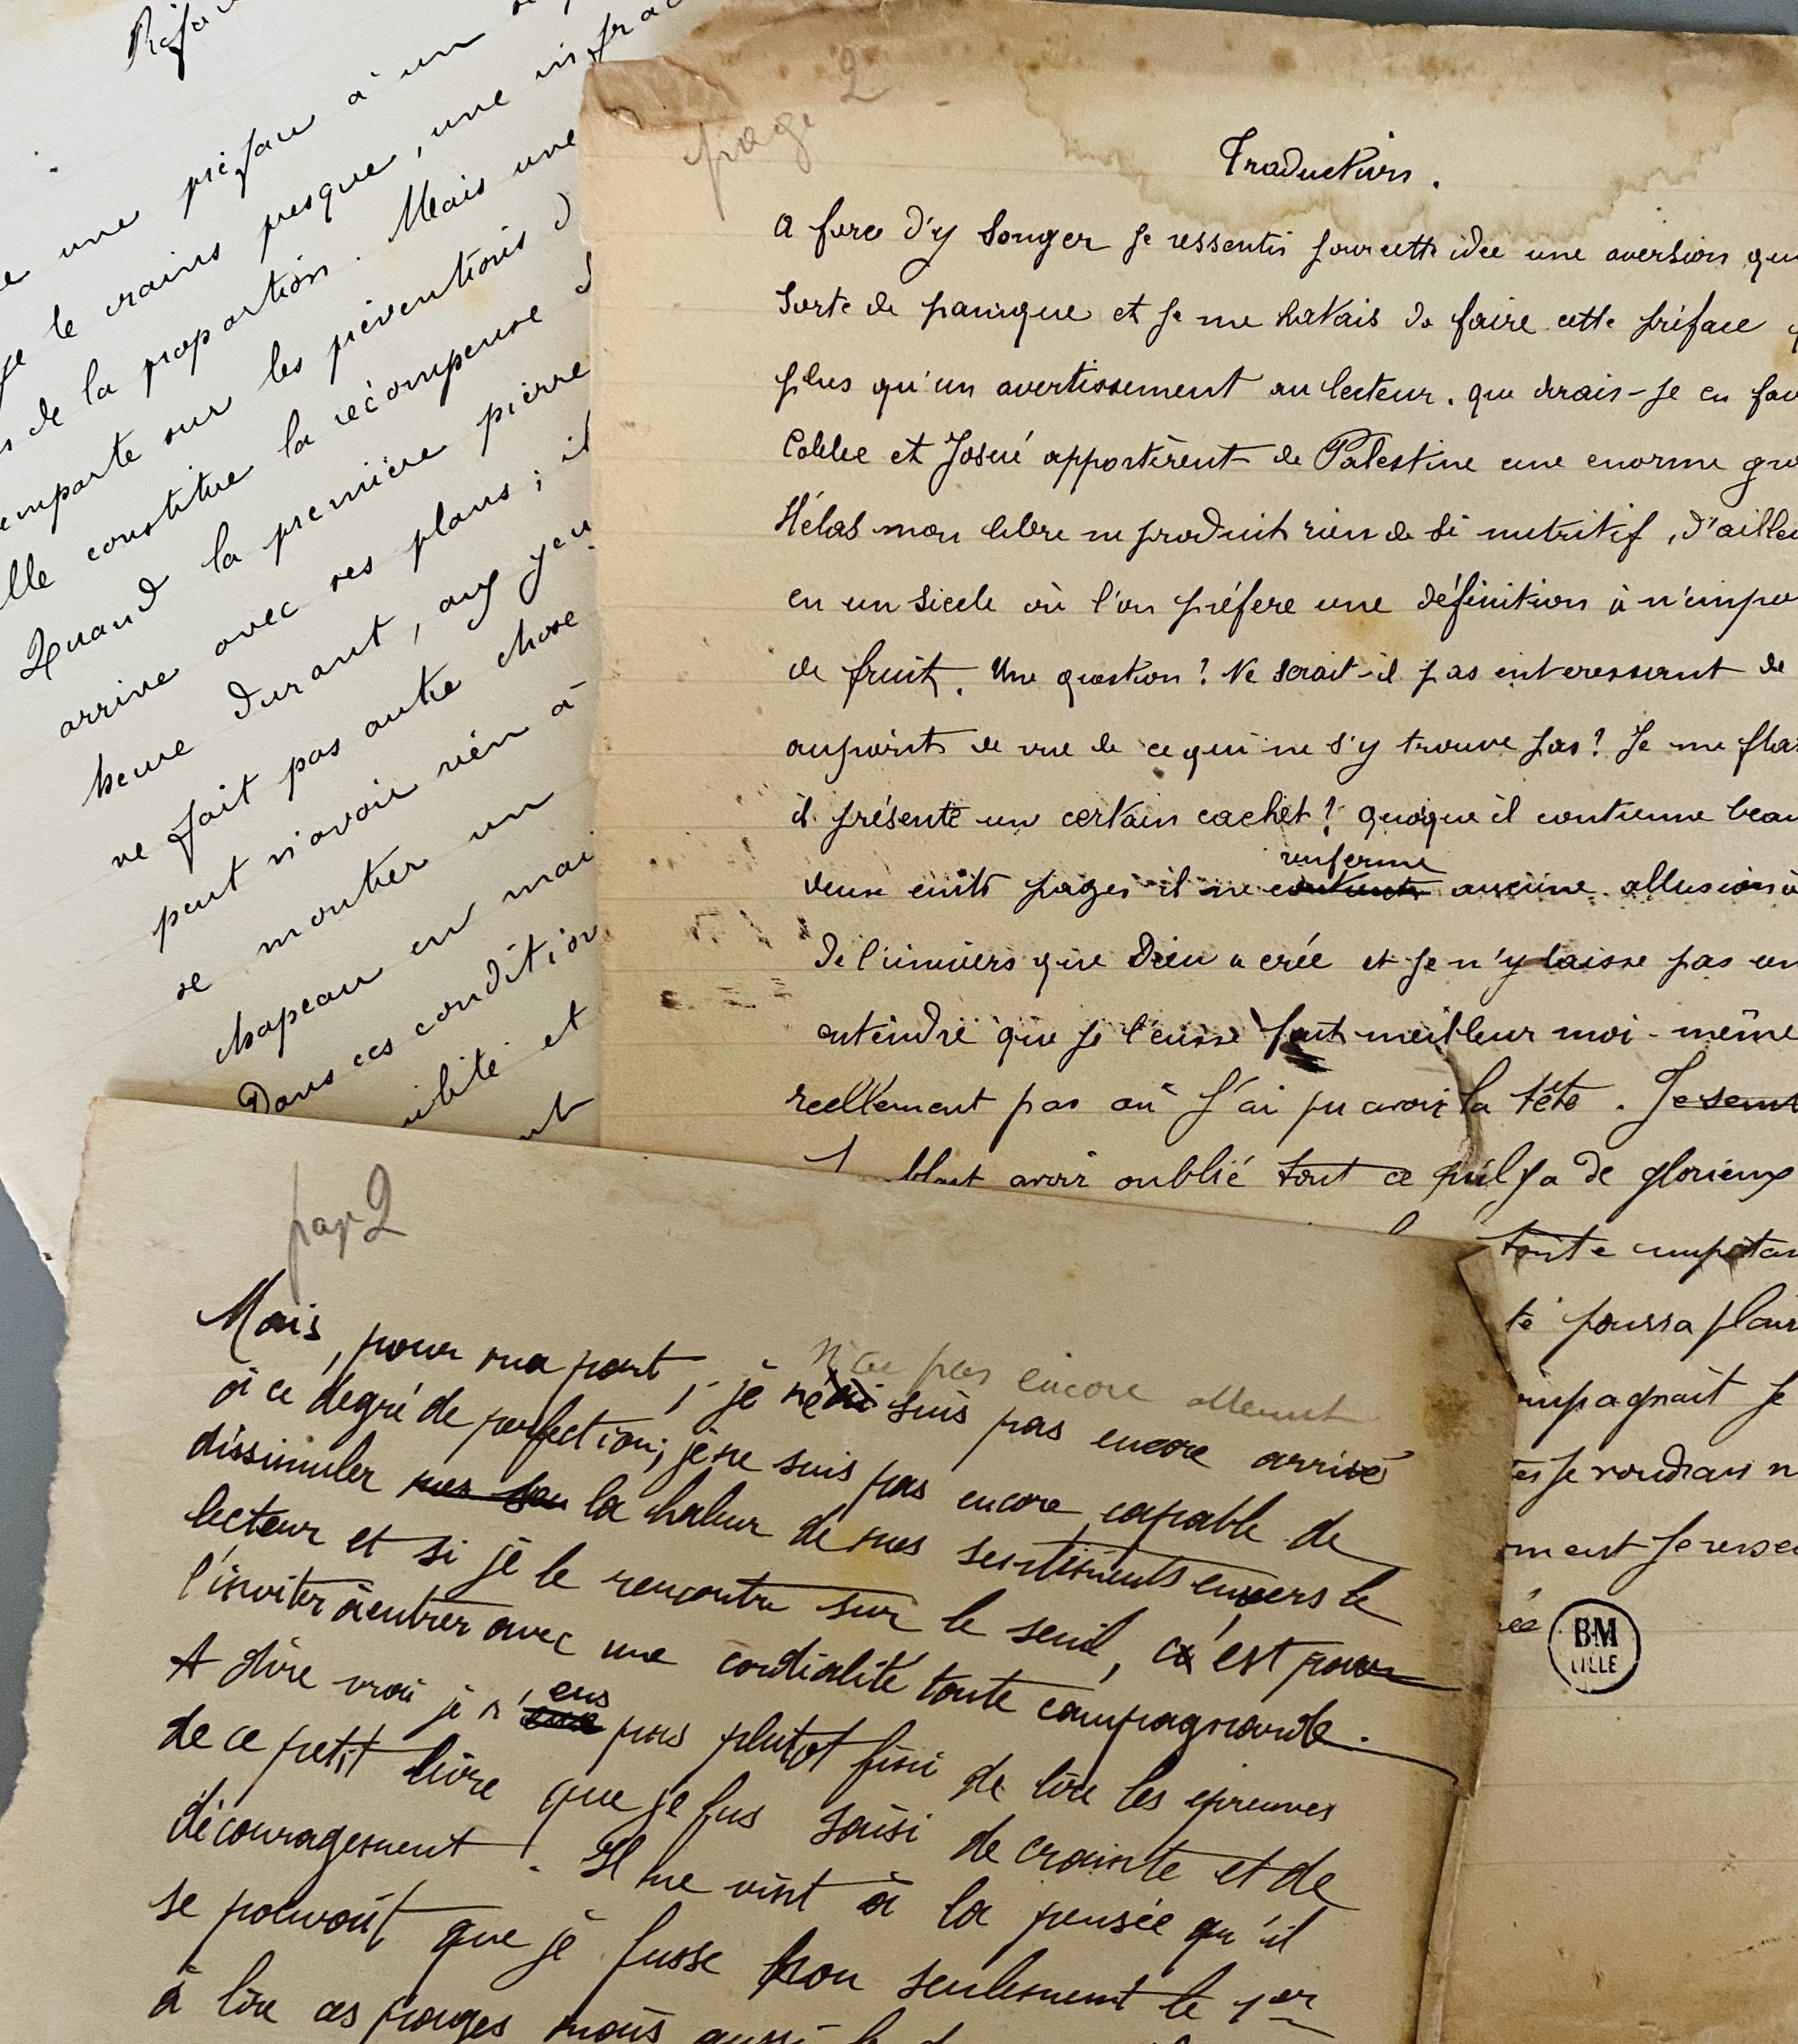 Préfa
une préface à un
je le crains presque, une infrac
de la proportion. Mais une
emporte sur les préventions d
elle constitue la récompense d
Quand la première pierre
arrive avec ses plans ; il
heure durant, aux yeux
ne fait pas autre chose
peut n'avoir rien à
se montrer un
chapeau en mai
Dans ces condition
ilité et
nt
page 2
Traduction.
A force d'y songer je ressentis pour cette idée une aversion qui
sorte de panique et je me hatais de faire cette préface
plus qu'un avertissement au lecteur. que dirais-je en fav
Calebe et Josué apportèrent de Palestine une enorme gra
Hélas mon libre ne produit rien de si nutritif, d'ailleu
en un siecle où l'on préfere une définition à n'impo
de fruit. Une question ? Ne serait-il pas interessant de
au point de vue de ce qui ne s'y trouve pas ? Je me flat
il présente un certain cachet ? quoique il contienne beau
renferme
deux cents pages il ne contient aucune allusion à
de l'univers que Dieu a crée et je n'y laisse pas en
entendre que je l'eusse fait meilleur moi-même
reellement pas où j'ai pu avoir la tête. Je sem
blait avoir oublié tout ce qu'il y a de glorieux
toute importan
te poussa plair
ompagnait je
tes je voudrais n
ment je resse
ée
BM
LILLE
page 2
n'ai pas encore atteint
Mais, pour ma part, je ne suis pas encore arrivé
à ce degré de perfection; je ne suis pas encore capable de
dissimuler mes sen la chaleur de mes sentiments envers le
lecteur et si je le rencontre sur le seuil, c'est pour
l'inviter à entrer avec une cordialité toute campagnarde.
eus
A dire vrai je n' pas plutot fini de lire les épreuves
de ce petit livre que je fus saisi de crainte et de
découragement. Il me vint à la pensée qu'il
se pouvait que je fusse non seulement le 1er
à lire ces pages mais aussi le